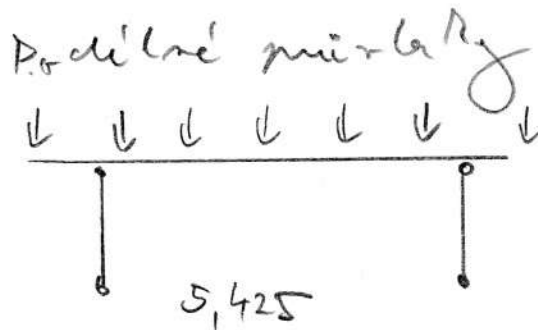 Podélné průvlaky
5,425